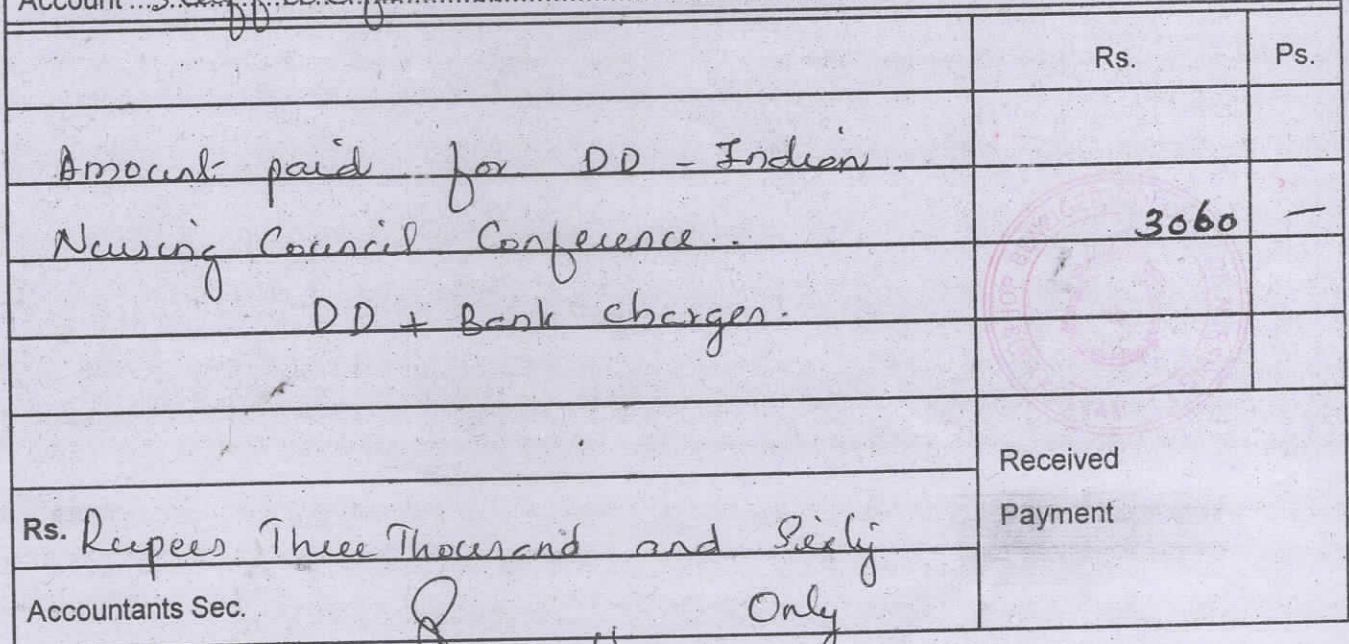 Account
Rs. Ps.
Amount paid for DD - Indian
Nursing Council Conference..
3060 —
DD + Bank charges.
Received
Payment
Rs. Rupees Three Thousand and Sixty
Accountants Sec. Only